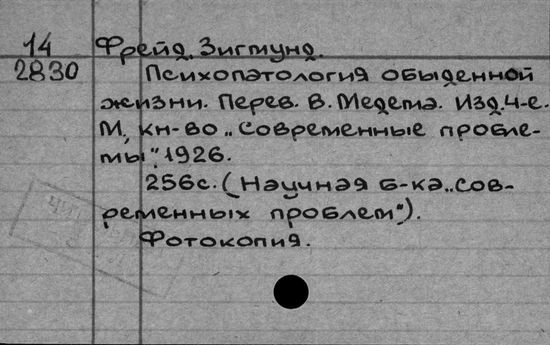 14 Фрейд, Зигмунд.
2830 Психопатология обыденной
жизни. Перев. В. Медема. Изд. 4-е.
М, кн-во „Современные пробле-
мы", 1926.
256с. (Научная б-ка „сов-
ременных проблем").
Фотокопия.